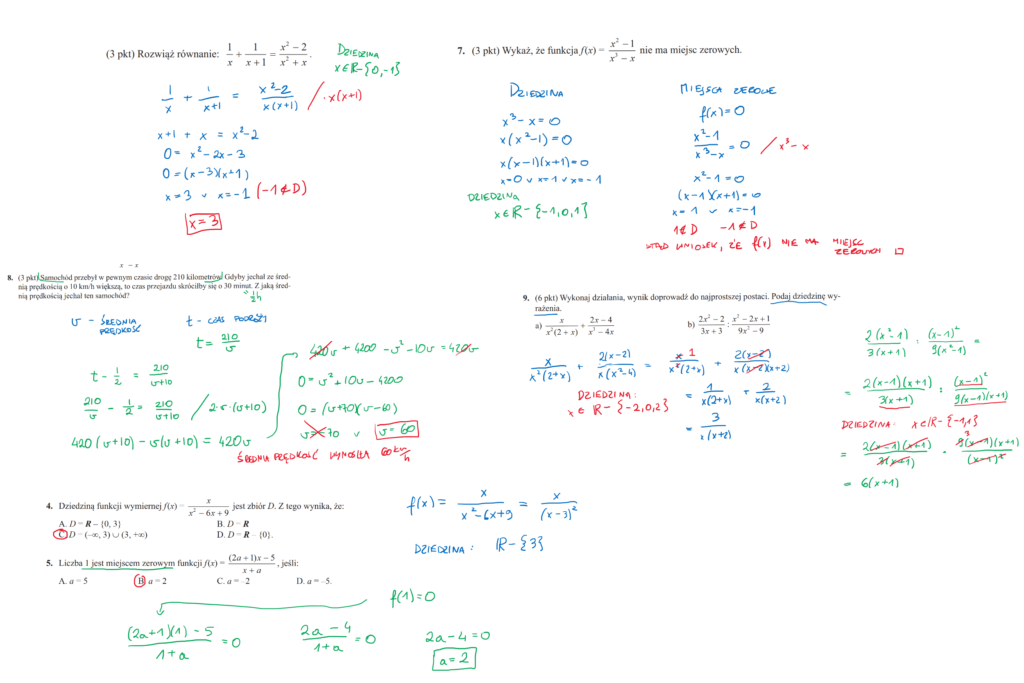 (3 pkt) Rozwiąż równanie: 1/x + 1/(x + 1) = (x² − 2)/(x² + x).
DZIEDZINA
x∈R-{0,-1}
1/x + 1/(x+1) = (x²-2)/(x(x+1)) / ·x(x+1)
x+1 + x = x²-2
0 = x² - 2x - 3
0 = (x-3)(x+1)
x=3 v x=-1 (-1∉D)
x=3
7. (3 pkt) Wykaż, że funkcja f(x) = (x² − 1)/(x³ − x) nie ma miejsc zerowych.
DZIEDZINA
x³ - x = 0
x(x²-1) = 0
x(x-1)(x+1) = 0
x=0 v x=1 v x=-1
DZIEDZINA
x∈R-{-1,0,1}
MIEJSCA ZEROWE
f(x)=0
(x²-1)/(x³-x) = 0 / x³-x
x²-1=0
(x-1)(x+1)=0
x=1 v x=-1
1∉D -1∉D
STĄD WNIOSEK, ŻE f(x) NIE MA MIEJSC
ZEROWYCH □
x − x
8. (3 pkt) Samochód przebył w pewnym czasie drogę 210 kilometrów. Gdyby jechał ze śred-
nią prędkością o 10 km/h większą, to czas przejazdu skróciłby się o 30 minut. Z jaką śred-
nią prędkością jechał ten samochód?
1/2 h
v - ŚREDNIA
PRĘDKOŚĆ
t - CZAS PODRÓŻY
t = 210/v
t - 1/2 = 210/(v+10)
210/v - 1/2 = 210/(v+10) / 2·v·(v+10)
420(v+10) - v(v+10) = 420v
420v + 4200 - v² - 10v = 420v
0 = v² + 10v - 4200
0 = (v+70)(v-60)
v=-70 v v=60
ŚREDNIA PRĘDKOŚĆ WYNOSIŁA 60 km/h
9. (6 pkt) Wykonaj działania, wynik doprowadź do najprostszej postaci. Podaj dziedzinę wy-
rażenia.
a) x/(x²(2 + x)) + (2x − 4)/(x³ − 4x)
b) (2x² − 2)/(3x + 3) : (x² − 2x + 1)/(9x² − 9)
x/(x²(2+x)) + 2(x-2)/(x(x²-4)) = x 1/(x²(2+x)) + 2(x-2)/(x(x-2)(x+2))
DZIEDZINA:
x∈R-{-2,0,2}
= 1/(x(2+x)) + 2/(x(x+2))
= 3/(x(x+2))
2(x²-1)/(3(x+1)) : (x-1)²/(9(x²-1)) =
= 2(x-1)(x+1)/(3(x+1)) : (x-1)²/(9(x-1)(x+1))
DZIEDZINA: x∈R-{-1,1}
= 2(x-1)(x+1)/(3(x+1)) · 3 9(x-1)(x+1)/((x-1)²)
= 6(x+1)
4. Dziedziną funkcji wymiernej f(x) = x/(x² − 6x + 9) jest zbiór D. Z tego wynika, że:
A. D = R − {0, 3} B. D = R
C. D = (−∞, 3) ∪ (3, +∞) D. D = R − {0}.
f(x) = x/(x²-6x+9) = x/(x-3)²
DZIEDZINA: R-{3}
5. Liczba 1 jest miejscem zerowym funkcji f(x) = ((2a + 1)x − 5)/(x + a), jeśli:
A. a = 5 B. a = 2 C. a = -2 D. a = -5.
f(1)=0
((2a+1)(1) - 5)/(1+a) = 0
(2a - 4)/(1+a) = 0
2a-4=0
a=2